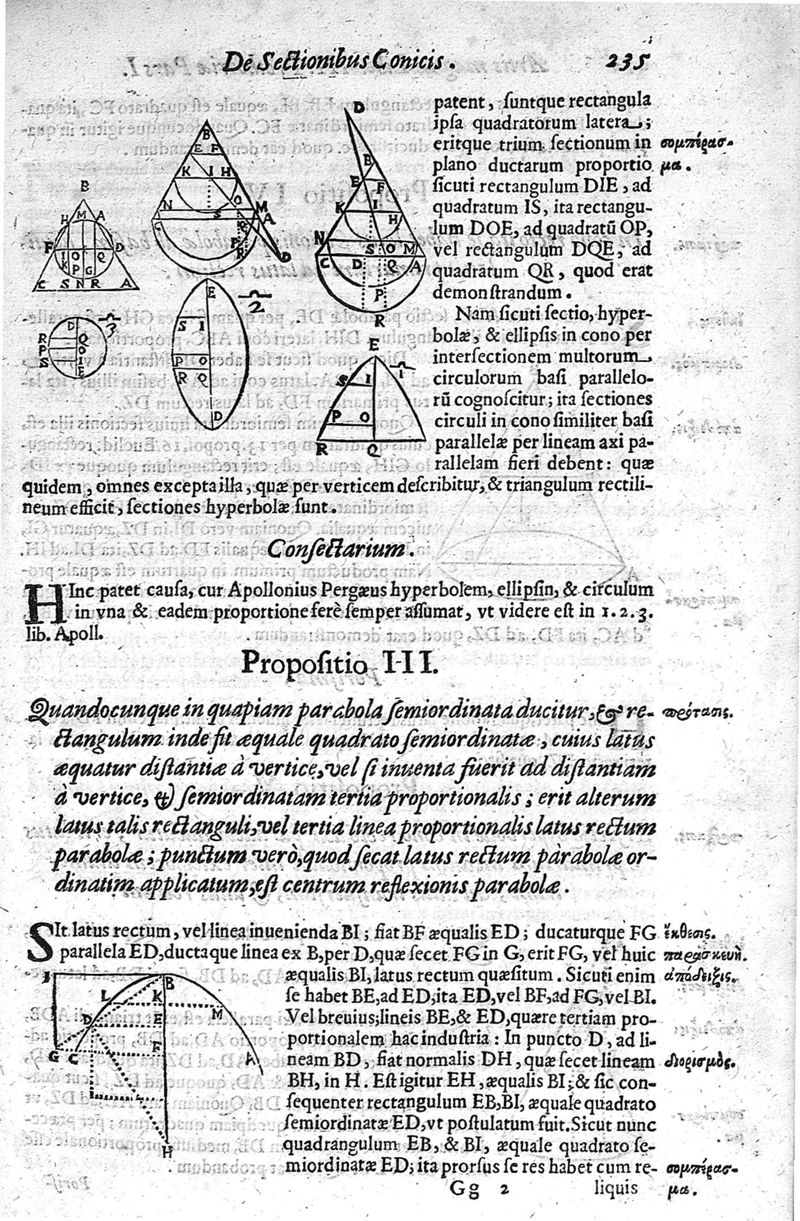 De Sectionibus Conicis. 235
patent, suntque rectangula
ipsa quadratorum latera;
eritque trium sectionum in συμπέρασ-
plano ductarum proportio μα.
sicuti rectangulum DIE, ad
quadratum IS, ita rectangu-
lum DOE, ad quadratũ OP,
vel rectangulum DQE, ad
quadratum QR, quod erat
demonstrandum.
Nam sicuti sectio, hyper-
bolæ, & ellipsis in cono per
intersectionem multorum
circulorum basi parallelo-
rũ cognoscitur; ita sectiones
circuli in cono similiter basi
parallelæ per lineam axi pa-
rallelam fieri debent: quæ
quidem, omnes excepta illa, quæ per verticem describitur, & triangulum rectili-
neum efficit, sectiones hyperbolæ sunt.
Consectarium.
HInc patet causa, cur Apollonius Pergæus hyperbolem, ellipsin, & circulum
in vna & eadem proportione ferè semper assumat, vt videre est in 1. 2. 3.
lib. Apoll.
Propositio III.
Quandocunque in quapiam parabola semiordinata ducitur, & re- πρότασις.
ctangulum inde fit æquale quadrato semiordinatæ, cuius latus
æquatur distantiæ à vertice, vel si inuenta fuerit ad distantiam
à vertice, & semiordinatam tertia proportionalis; erit alterum
latus talis rectanguli, vel tertia linea proportionalis latus rectum
parabolæ; punctum verò, quod secat latus rectum parabolæ or-
dinatim applicatum, est centrum reflexionis parabolæ.
SIt latus rectum, vel linea inuenienda BI; fiat BF æqualis ED; ducaturque FG ἔκθεσις.
parallela ED, ductaque linea ex B, per D, quæ secet FG in G, erit FG, vel huic παρασκευή.
æqualis BI, latus rectum quæsitum. Sicuti enim ἀπόδειξις.
se habet BE, ad ED, ita ED, vel BF, ad FG, vel BI.
Vel breuius; lineis BE, & ED, quære tertiam pro-
portionalem hac industria: In puncto D, ad li-
neam BD, fiat normalis DH, quæ secet lineam διορισμός.
BH, in H. Est igitur EH, æqualis BI; & sic con-
sequenter rectangulum EB, BI, æquale quadrato
semiordinatæ ED, vt postulatum fuit. Sicut nunc
quadrangulum EB, & BI, æquale quadrato se-
miordinatæ ED; ita prorsus se res habet cum re- συμπέρασ-
Gg 2 liquis μα.